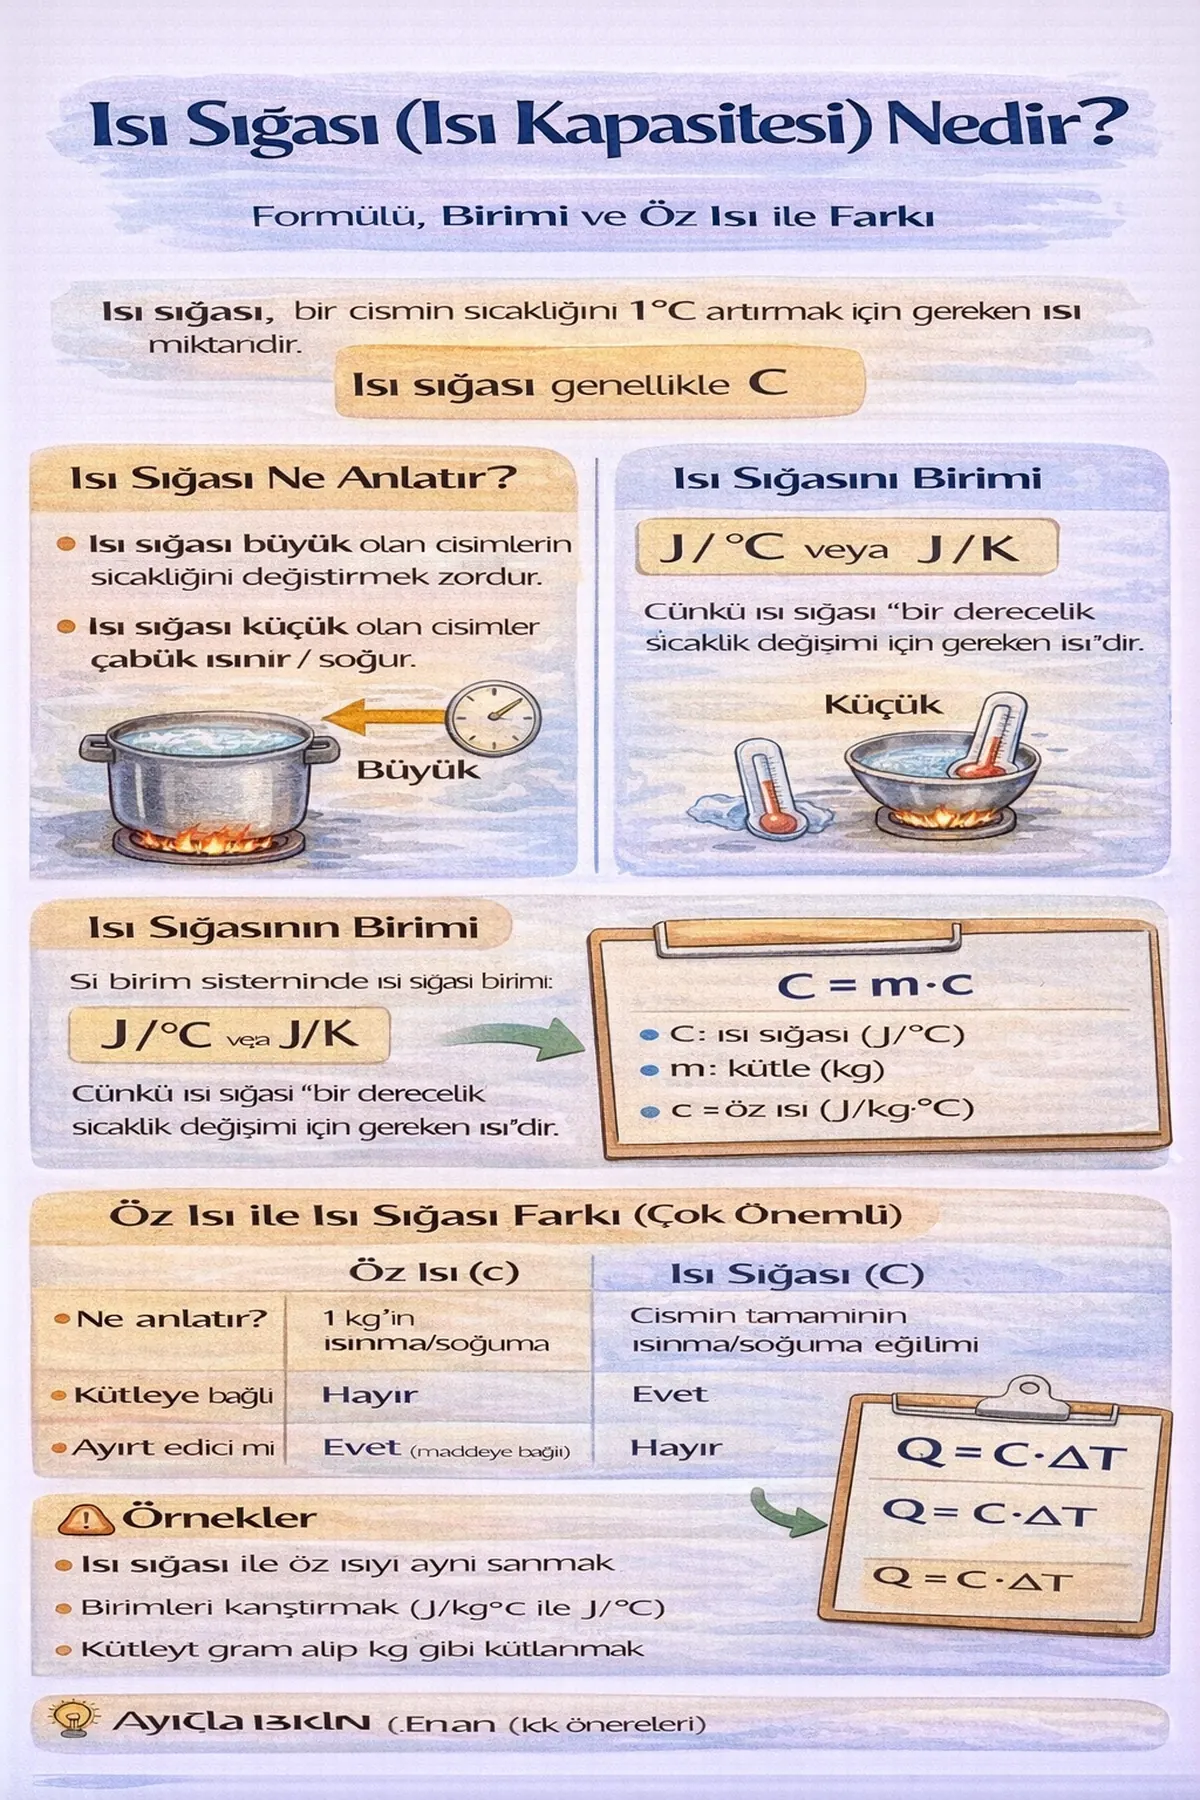 Isı Sığası (Isı Kapasitesi) Nedir?
Formülü, Birimi ve Öz Isı ile Farkı
Isı sığası, bir cismin sıcaklığını 1°C artırmak için gereken ısı
miktarıdır.
Isı sığası genellikle C
Isı Sığası Ne Anlatır?
Isı sığası büyük olan cisimlerin
sicakliğini değistirmek zordur.
Isı sığası küçük olan cisimler
çabük ısınir / soğur.
Büyük
Isı Sığasını Birimi
J / °C veya J / K
Cünkü ısı sığası “bir derecelik
sicaklik değişimi için gereken ısı”dir.
Küçük
Isı Sığasının Birimi
Si birim sisterninde ısi siğasi birimi:
J /°C veya J/K
Cünkü ısi sığası “bir derecelik
sicaklik değişimi için gereken ısı”dir.
C = m·c
C: ısı sığası (J/°C)
m: kütle (kg)
c = öz ısı (J/kg·°C)
Öz Isı ile Isı Sığası Farkı (Çok Önemli)
Öz Isı (c) Isı Sığası (C)
Ne anlatır? 1 kg’in Cismin tamaminin
ısinma/soğuma ısinma/soğuma eğilimi
Kütleye bağli Hayır Evet
Ayırt edici mi Evet (maddeye bağli) Hayır
Q = C·ΔT
Q = C·ΔT
Q = C·ΔT
Örnekler
Isı sığası ile öz ısıyı ayni sanmak
Birimleri kanştirmak (J/kg°c ile J/°C)
Kütleyt gram alip kg gibi kütlanmak
(.Enan (kk önereleri)